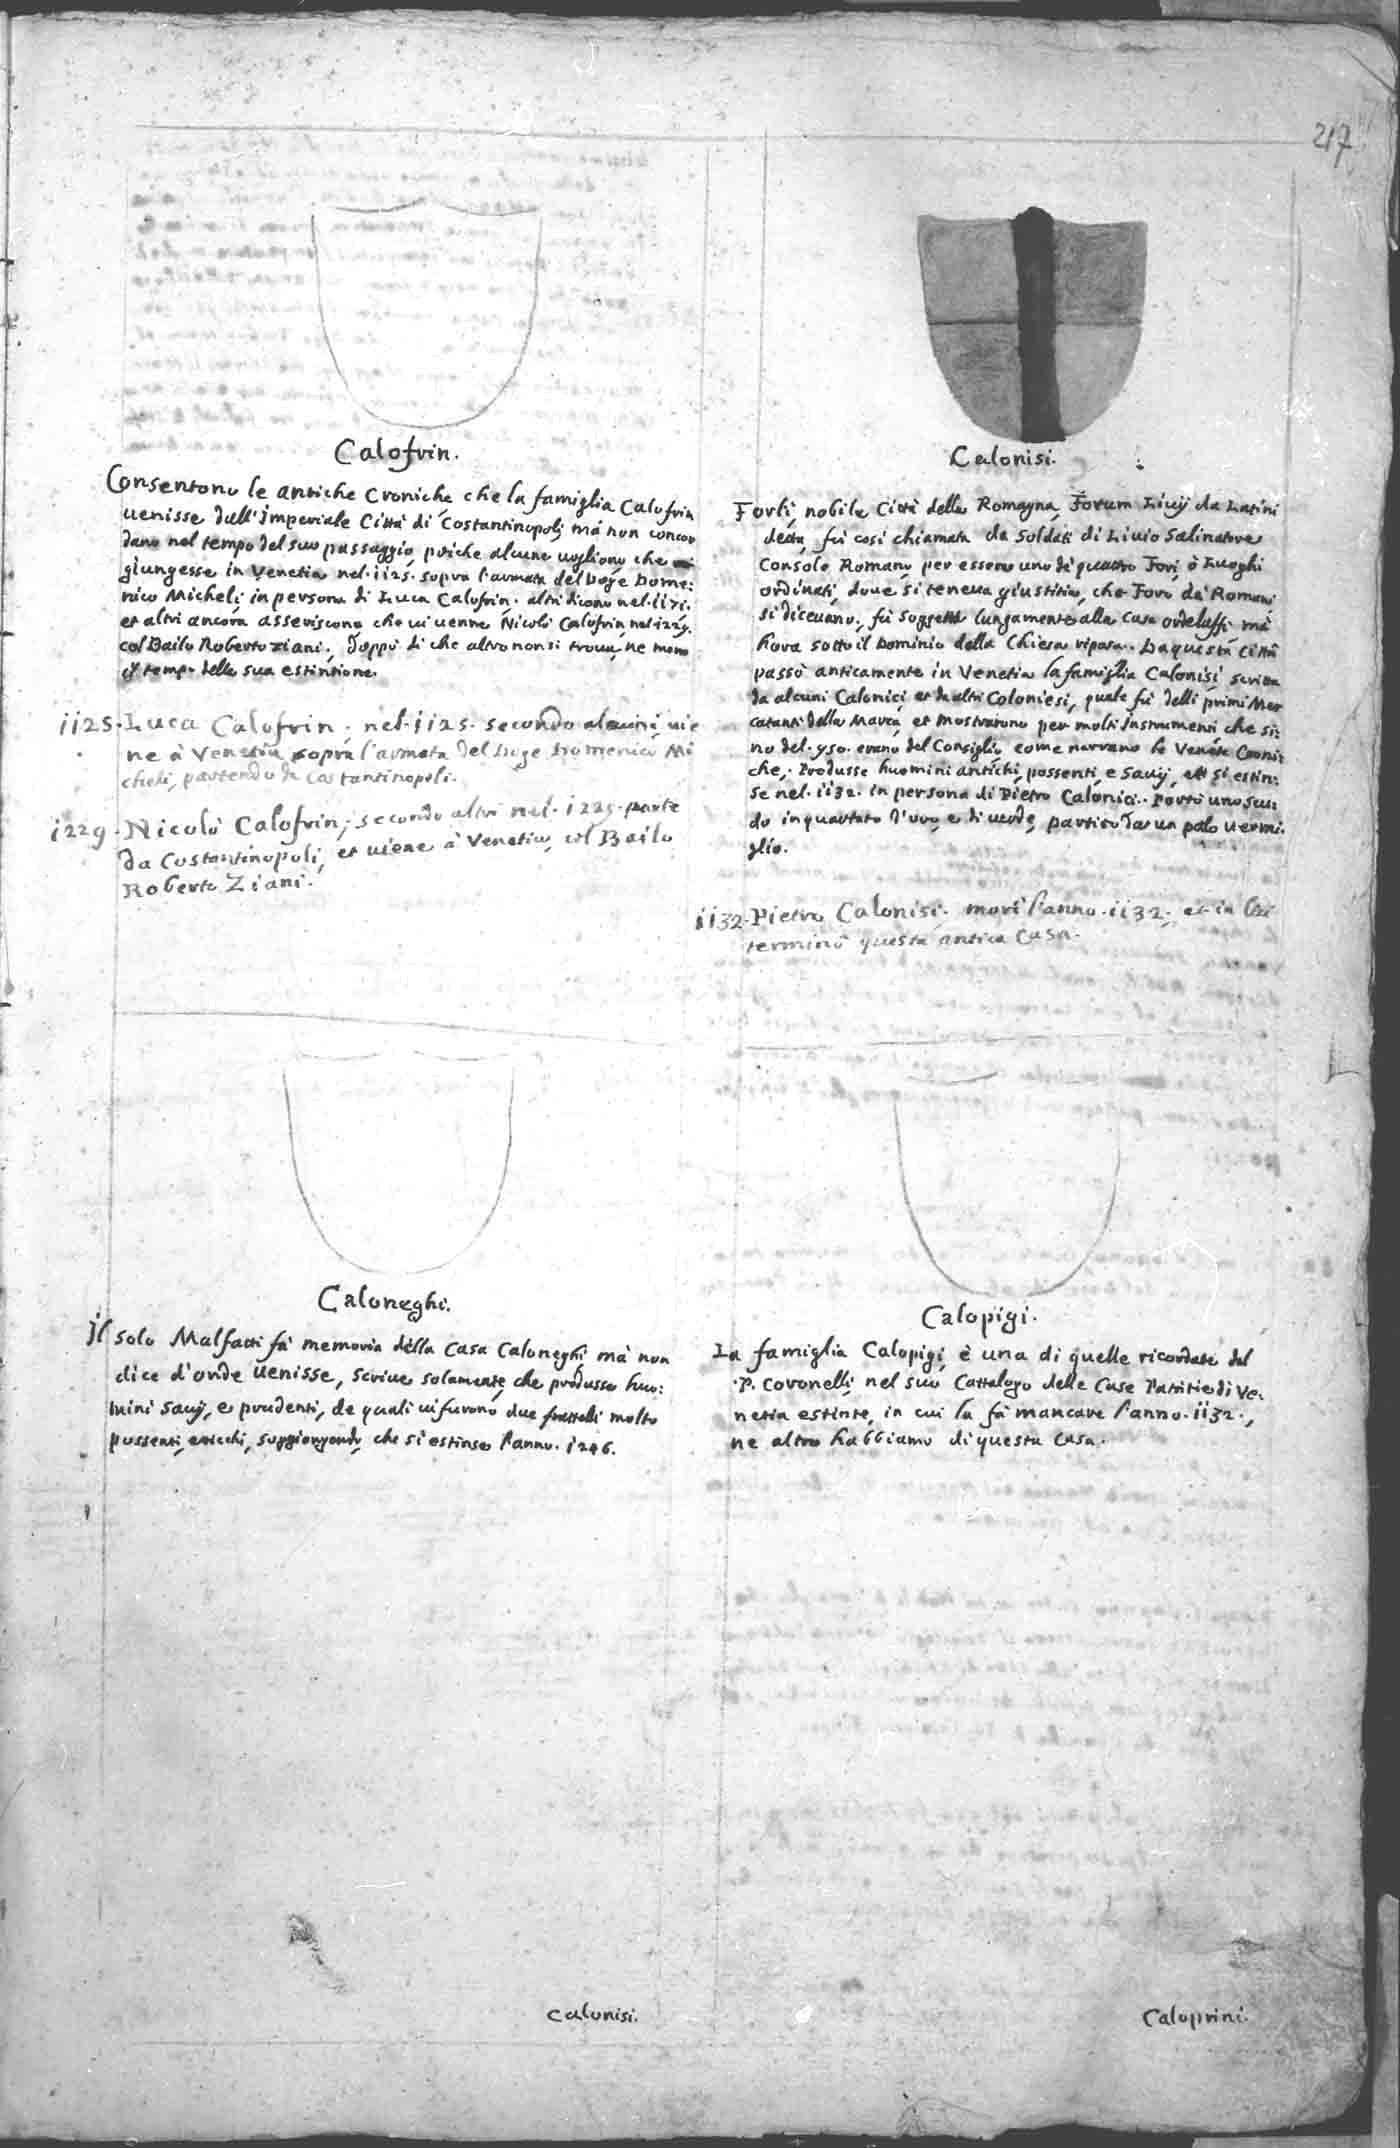 217
Calofrin.
Consentono le antiche Croniche che la famiglia Calofrin
uenisse dall'imperiale Città di Costantinopoli, mà non concor
dano nel tempo del suo passaggio, poiche alcune uogliono che
giungesse in Venetia nel .1125. sopra l'armata del Doge Dome:
nico Micheli, in persona di Luca Calofrin. altri dicono nel .1171.
et altri ancora asseriscono che ui uenne Nicolò Calofrin nel 1229.
col Bailo Roberto Ziani. Doppò di che altro non si troua, ne meno
il tempo della sua estintione.
1125. Luca Calofrin, nel .1125. secondo alcuni, uie
ne à Venetia sopra l'armata del Doge Domenico Mi
cheli, partendo da Costantinopoli.
1229. Nicolò Calofrin, secondo altri nel .1229. parte
da Costantinopoli, et uiene à Venetia, col Bailo
Roberto Ziani.
Caloneghi.
Il solo Malfatti fà memoria della Casa Caloneghi mà non
dice d'onde uenisse, scriue solamente, che produsse huo:
mini sauij, e prudenti, de quali ui furono due frattelli molto
possenti, e ricchi, soggiongendo, che si estinse l'anno .1246.
Calonisi.
Calonisi.
Forlì, nobile Città della Romagna, Forum Liuij da Latini
detta, fù così chiamata da soldati di Liuio Salinatore
Console Romano, per essere uno de quattro Fori, ò Luoghi
ordinati, doue si teneua giustitia, che Foro da Romani
si diceuano, fù soggetta lungamente alla Casa Ordelaffi mà
hora sotto il Dominio della Chiesa riposa. Da questa Città
passò anticamente in Venetia la famiglia Calonisi, scritta
da alcuni Calonici, et da altri Coloniesi, quale fù delli primi Mer
catanti della Marca, et mostrarono per molti Instrumenti che si:
no del .950. erano del Consiglio, come narrano le Venete Croni:
che. Produsse huomini antichi, possenti, e Sauij, et si estin:
se nel .1132. in persona di Pietro Calonici. Portò uno scu
do inquartato d'oro, e di uerde, partito da un palo uermi:
glio.
1132. Pietro Calonisi. morì l'anno .1132. et in lui
terminò questa antica Casa.
Calopigi.
La famiglia Calopigi, è una di quelle ricordate dal
.P. Coronelli, nel suo Cattalogo delle Case Patritie di Ve:
netia estinte, in cui la fà mancare l'anno .1132.,
ne altro habbiamo di questa Casa.
Caloprini.